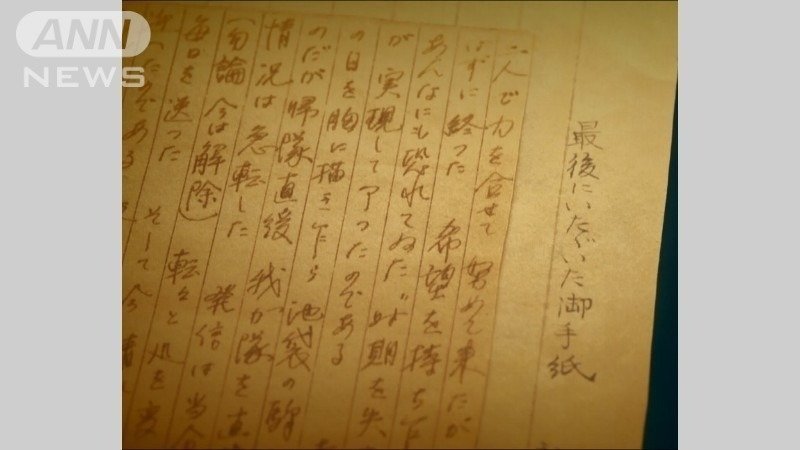 ANN
NEWS
最後にいたゞいた御手紙
二人で力を合せて 努めて来たが
ずに終った 希望を持ち
あんなにも恐れてゐた 時期を失
が 実現して了ったのである
の日を胸に描き乍ら 池袋の駅
のだが帰隊直後 我が隊を直
情況は急転した 発信は当分
(勿論 今は解除) 転々と処を変
毎日を送った そして今
たのである